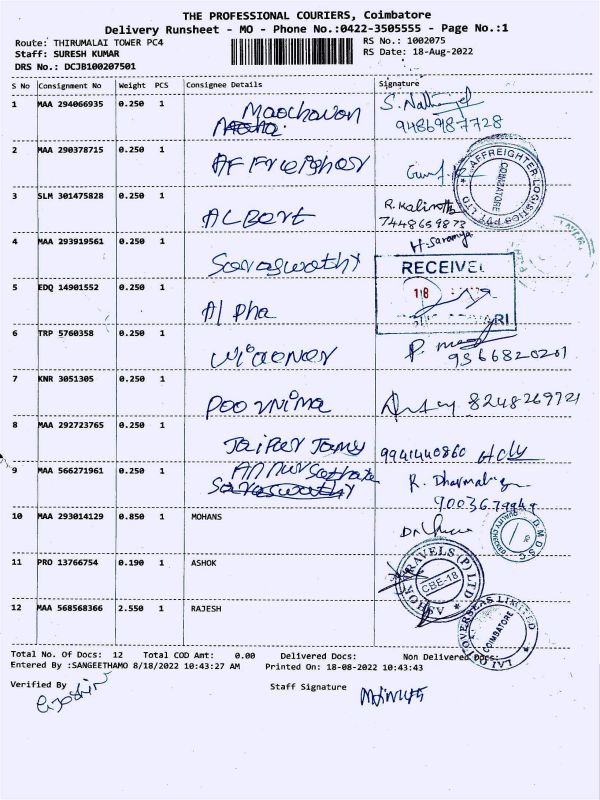 THE PROFESSIONAL COURIERS, Coimbatore
Delivery Runsheet - MO - Phone No.:0422-3505555 - Page No.:1
Route: THIRUMALAI TOWER PC4 RS No.: 1002075
Staff: SURESH KUMAR RS Date: 18-Aug-2022
DRS No.: DCJB100207501
S No Consignment No Weight PCS Consignee Details Signature
1 MAA 294066935 0.250 1 S.
9486987728
2 MAA 290378715 0.250 1
AFFREIGHTER LOGISTICS PVT LTD
COIMBATORE
3 SLM 301475828 0.250 1 ALBERT R. Kalinath
7448659873
4 MAA 293919561 0.250 1 Saraswathy H. Saranya
RECEIVED
18
5 EDQ 14901552 0.250 1 Alpha
6 TRP 5760358 0.250 1 P.
9566820201
7 KNR 3051305 0.250 1 Poornima 8248269721
8 MAA 292723765 0.250 1 Jaipur 9941440860
9 MAA 566271961 0.250 1 Saraswathy R. Dharmalingam
10 MAA 293014129 0.850 1 MOHANS
D.M.D.S.C
11 PRO 13766754 0.190 1 ASHOK
ASHOK TRAVELS (P) LTD
CBE-18
12 MAA 568568366 2.550 1 RAJESH
OVERSEAS LIMITED
COIMBATORE
Total No. Of Docs: 12 Total COD Amt: 0.00 Delivered Docs: Non Delivered Docs:
Entered By :SANGEETHAMO 8/18/2022 10:43:27 AM Printed On: 18-08-2022 10:43:43
Verified By Staff Signature